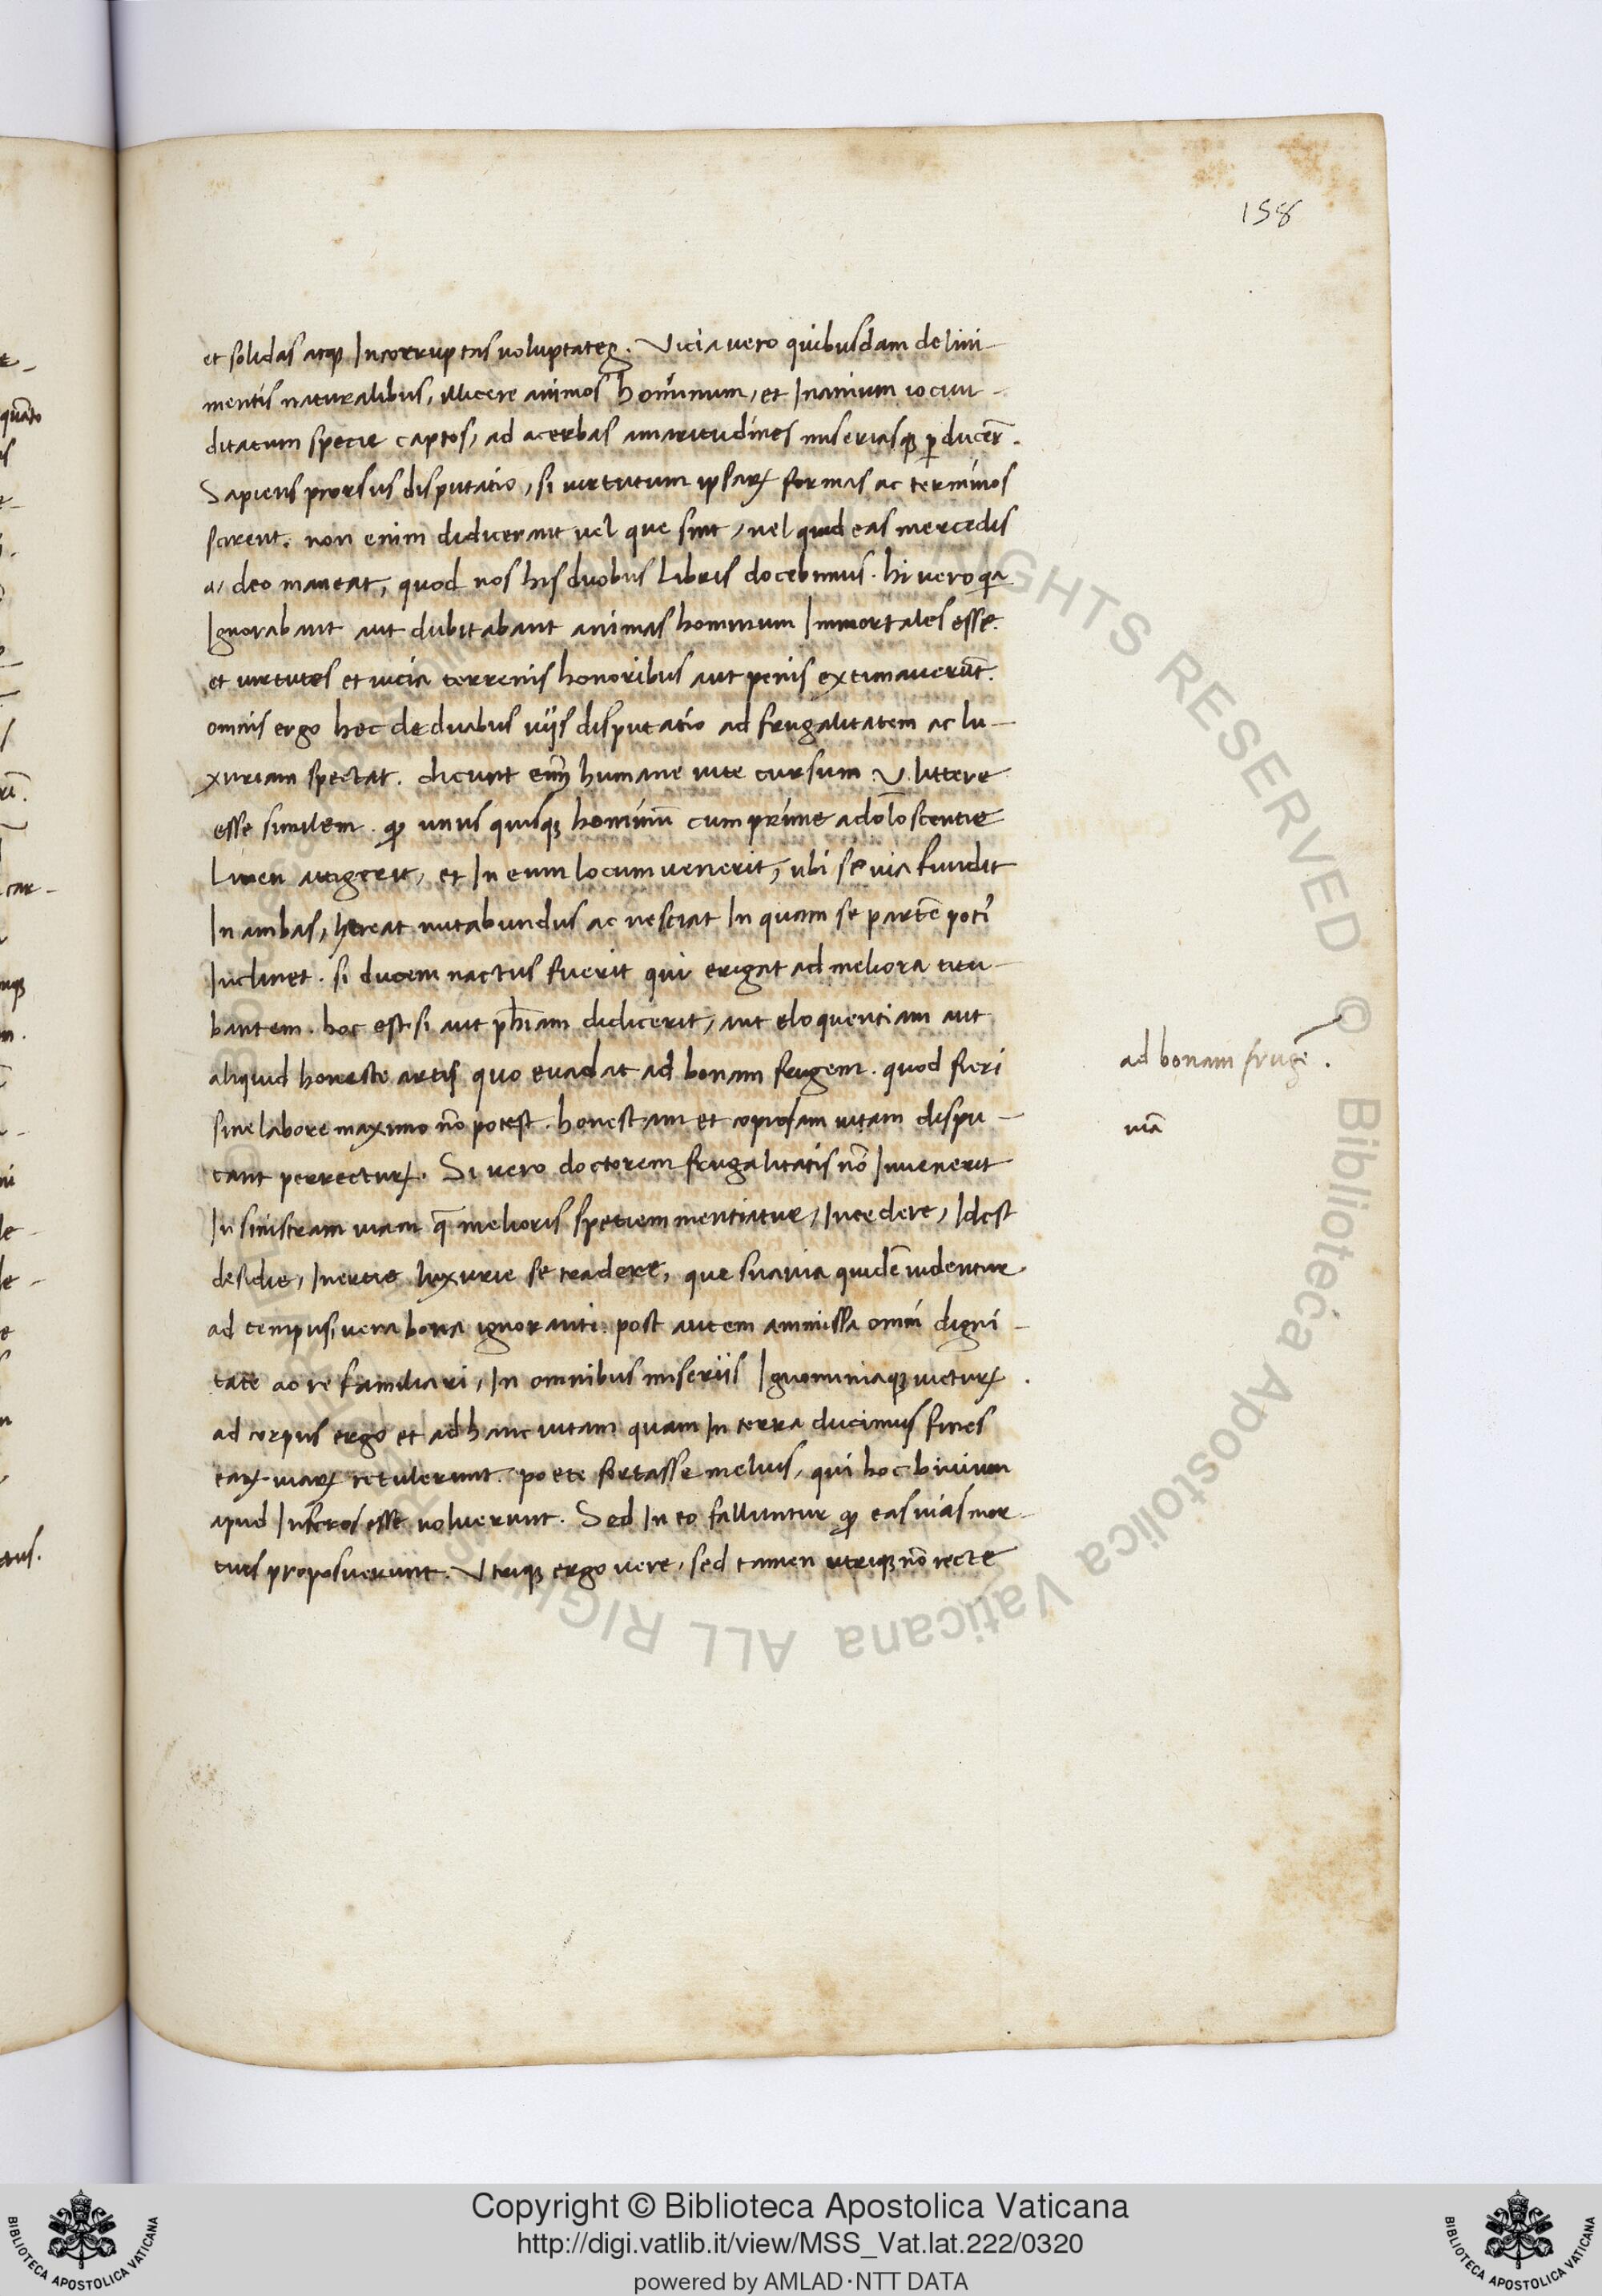 158
et solidas atqꝫ Incorruptas voluptates. Vicia vero quibusdam delini-
mentis naturalibus, illicere animos hominum, et Inanium iocun-
ditatum specie captos, ad acerbas amaritudines miseriasqꝫ ꝑducer̄.
Sapiens prorsus disputatio, si virtutum ipsaꝝ formas ac terminos
scirent. non enim didicerant vel que sint, vel quid eas mercedis
a, deo maneat, quod nos his duobus Libris docebimus. hi vero qꝛ
Ignorabant aut dubitabant animas hominum Immortales esse.
et virtutes et vicia terrenis honoribus aut penis extimaverūt.
omnis ergo hec de duabus viis disputatio ad frugalitatem ac lu-
xuriam spectat. dicunt eni humane vite cursum .V. littere
esse similem. ꝙ unus quisqꝫ hominū cum prime adolescentie
Limen attigerit, et In eum locum venerit, ubi se via fundit
In ambas, hereat nutabundus ac nesciat In quam se partē poti
Inclinet. si ducem nactus fuerit qui erigat ad meliora titu-
bantem. hoc est si aut ph̄iam didicerit, aut eloquentiam aut
aliquid honeste artis quo evadat ad bonam frugem. quod fieri
ad bonam frugē.
sine labore maximo nō potest. honestam et copiosam vitam dispu-
viā
tant perrecturꝝ. Si vero doctorem frugalitatis nō Invenerit
In sinistram viam q̄ melioris speciem mentiatur, Incedere, Idest
desidie, Inertie luxurie se tradere, que suavia quidē videntur
ad tempus, vera bona ignoranti. post autem ammissa omni digni-
tate ac re familiari, In omnibus miseriis Ignominiaqꝫ victurꝝ.
ad corpus ergo et ad hanc vitam quam In terra ducimus fines
eaꝝ viaꝝ retulerunt. poete fortasse melius, qui hoc bivium
apud Inferos esse voluerunt. Sed In eo falluntur ꝙ eas vias mor-
tuis proposuerunt. Utriqꝫ ergo vere, sed tamen utriqꝫ nō recte
© Biblioteca Apostolica Vaticana ALL RIGHTS RESERVED
Copyright © Biblioteca Apostolica Vaticana
http://digi.vatlib.it/view/MSS_Vat.lat.222/0320
powered by AMLAD·NTT DATA
BIBLIOTECA APOSTOLICA VATICANA
BIBLIOTECA APOSTOLICA VATICANA